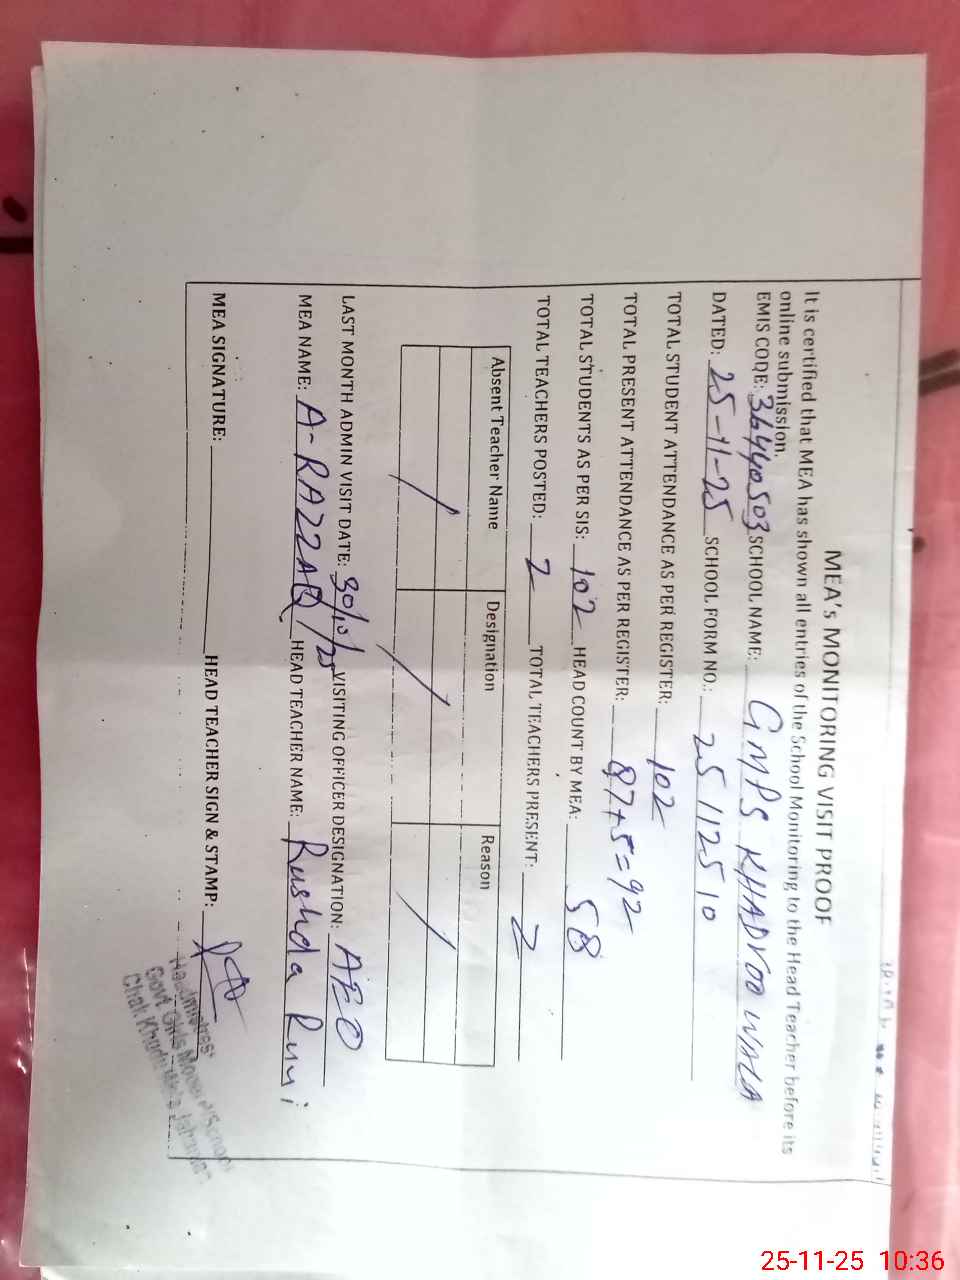 MEA's MONITORING VISIT PROOF
It is certified that MEA has shown all entries of the School Monitoring to the Head Teacher before its
online submission.
EMIS CODE: 36440503 SCHOOL NAME: GMPS KHADVOO WALA
DATED: 25-11-25 SCHOOL FORM NO.: 25112510
TOTAL STUDENT ATTENDANCE AS PER REGISTER: 102
TOTAL PRESENT ATTENDANCE AS PER REGISTER: 87+5=92
TOTAL STUDENTS AS PER SIS: 102 HEAD COUNT BY MEA: 58
TOTAL TEACHERS POSTED: 2 TOTAL TEACHERS PRESENT: 2
Absent Teacher Name Designation Reason
/ / /
LAST MONTH ADMIN VISIT DATE: 30/10/25 VISITING OFFICER DESIGNATION: AEO
MEA NAME: A-RAZZAQ HEAD TEACHER NAME: Rushda Runi
MEA SIGNATURE: HEAD TEACHER SIGN & STAMP:
Headmistress
Govt Girls Model P/School
Chak
25-11-25 10:36